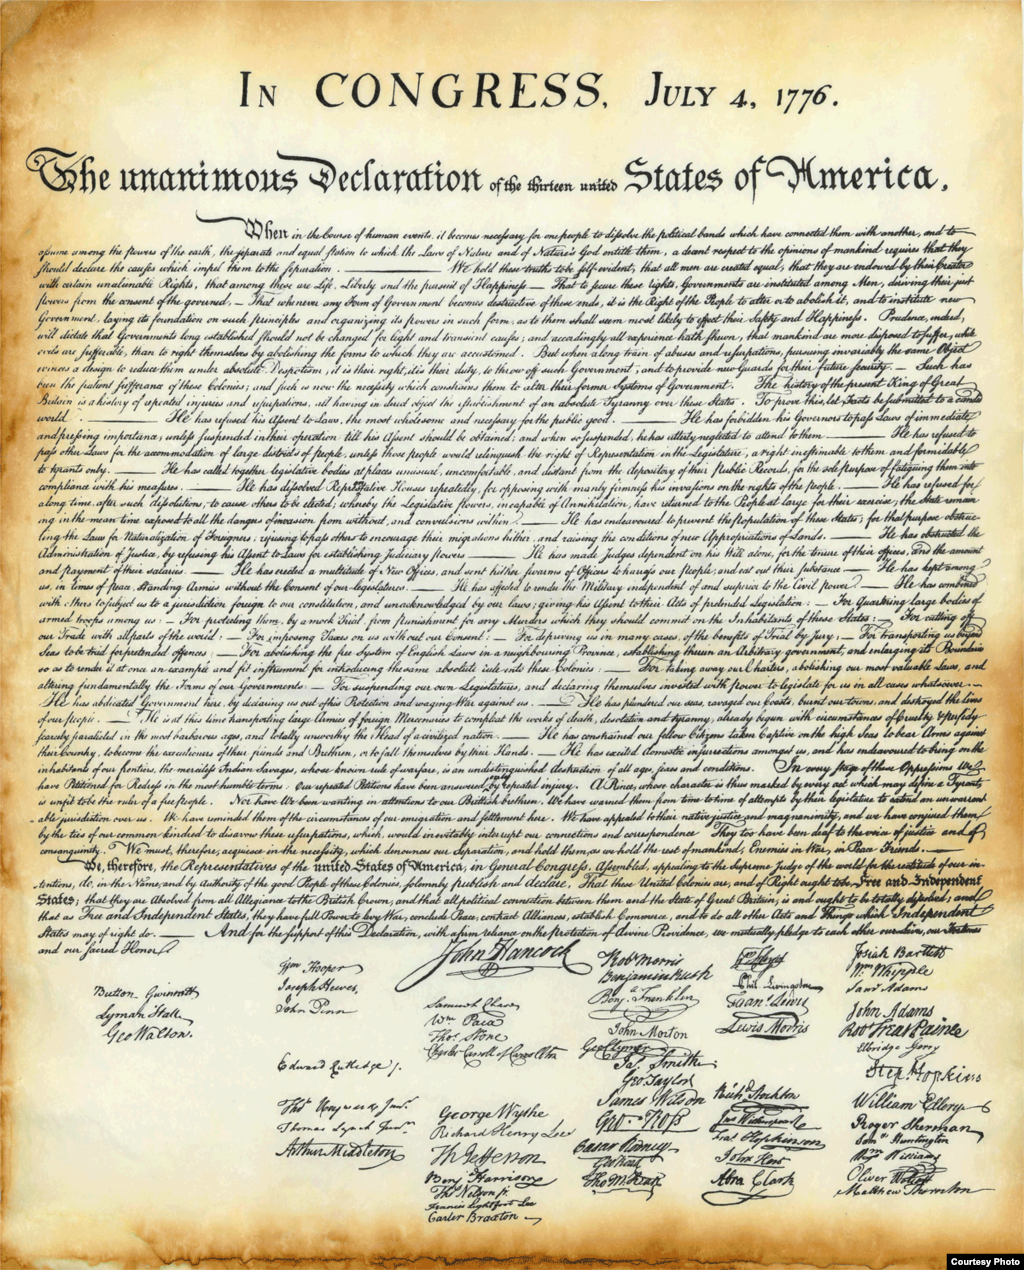 In CONGRESS, July 4, 1776.
The unanimous Declaration of the thirteen united States of America,
When in the Course of human events, it becomes necessary for one people to dissolve the political bands which have connected them with another, and to
assume among the powers of the earth, the separate and equal station to which the Laws of Nature and of Nature's God entitle them, a decent respect to the opinions of mankind requires that they
should declare the causes which impel them to the separation. — We hold these truths to be self-evident, that all men are created equal, that they are endowed by their Creator
with certain unalienable Rights, that among these are Life, Liberty and the pursuit of Happiness — That to secure these rights, Governments are instituted among Men, deriving their just
powers from the consent of the governed, — That whenever any Form of Government becomes destructive of these ends, it is the Right of the People to alter or to abolish it, and to institute new
Government, laying its foundation on such principles and organizing its powers in such form, as to them shall seem most likely to effect their Safety and Happiness. Prudence, indeed,
will dictate that Governments long established should not be changed for light and transient causes; and accordingly all experience hath shewn, that mankind are more disposed to suffer, while
evils are sufferable, than to right themselves by abolishing the forms to which they are accustomed. But when a long train of abuses and usurpations, pursuing invariably the same Object
evinces a design to reduce them under absolute Despotism, it is their right, it is their duty, to throw off such Government, and to provide new Guards for their future security. — Such has
been the patient sufferance of these Colonies; and such is now the necessity which constrains them to alter their former Systems of Government. The history of the present King of Great
Britain is a history of repeated injuries and usurpations, all having in direct object the establishment of an absolute Tyranny over these States. To prove this, let Facts be submitted to a candid
world. — He has refused his Assent to Laws, the most wholesome and necessary for the public good. — He has forbidden his Governors to pass Laws of immediate
and pressing importance, unless suspended in their operation till his Assent should be obtained; and when so suspended, he has utterly neglected to attend to them. — He has refused to
pass other Laws for the accommodation of large districts of people, unless those people would relinquish the right of Representation in the Legislature, a right inestimable to them and formidable
to tyrants only. — He has called together legislative bodies at places unusual, uncomfortable, and distant from the depository of their Public Records, for the sole purpose of fatiguing them into
compliance with his measures. — He has dissolved Representative Houses repeatedly, for opposing with manly firmness his invasions on the rights of the people. — He has refused for
a long time, after such dissolutions, to cause others to be elected; whereby the Legislative powers, incapable of Annihilation, have returned to the People at large for their exercise; the State remain
ing in the mean time exposed to all the dangers of invasion from without, and convulsions within. — He has endeavoured to prevent the population of these States; for that purpose obstruc-
ting the Laws for Naturalization of Foreigners; refusing to pass others to encourage their migrations hither, and raising the conditions of new Appropriations of Lands. — He has obstructed the
Administration of Justice, by refusing his Assent to Laws for establishing Judiciary powers. — He has made Judges dependent on his Will alone, for the tenure of their offices, and the amount
and payment of their salaries — He has erected a multitude of New Offices, and sent hither swarms of Officers to harrass our people, and eat out their substance — He has kept among
us, in times of peace, Standing Armies without the Consent of our legislatures. — He has affected to render the Military independent of and superior to the Civil power. — He has combined
with others to subject us to a jurisdiction foreign to our constitution, and unacknowledged by our laws; giving his Assent to their Acts of pretended Legislation: — For Quartering large bodies of
armed troops among us: — For protecting them, by a mock Trial, from punishment for any Murders which they should commit on the Inhabitants of these States: — For cutting off
our Trade with all parts of the world: — For imposing Taxes on us without our Consent: — For depriving us in many cases, of the benefits of Trial by Jury; — For transporting us beyond
Seas to be tried for pretended offences: — For abolishing the free System of English Laws in a neighbouring Province, establishing therein an Arbitrary government, and enlarging its Boundaries
so as to render it at once an example and fit instrument for introducing the same absolute rule into these Colonies: — For taking away our Charters, abolishing our most valuable Laws, and
altering fundamentally the Forms of our Governments: — For suspending our own Legislatures, and declaring themselves invested with power to legislate for us in all cases whatsoever. —
He has abdicated Government here, by declaring us out of his Protection and waging War against us. — He has plundered our seas, ravaged our Coasts, burnt our towns, and destroyed the lives
of our people. — He is at this time transporting large Armies of foreign Mercenaries to compleat the works of death, desolation and tyranny, already begun with circumstances of Cruelty & perfidy
scarcely paralleled in the most barbarous ages, and totally unworthy the Head of a civilized nation. — He has constrained our fellow Citizens taken Captive on the high Seas to bear Arms against
their Country, to become the executioners of their friends and Brethren, or to fall themselves by their Hands. — He has excited domestic insurrections amongst us, and has endeavoured to bring on the
inhabitants of our frontiers, the merciless Indian Savages, whose known rule of warfare, is an undistinguished destruction of all ages, sexes and conditions. In every stage of these Oppressions We
have Petitioned for Redress in the most humble terms: Our repeated Petitions have been answered only by repeated injury. A Prince, whose character is thus marked by every act which may define a Tyrant,
is unfit to be the ruler of a free people. Nor have We been wanting in attentions to our British brethren. We have warned them from time to time of attempts by their legislature to extend an unwarrant
able jurisdiction over us. We have reminded them of the circumstances of our emigration and settlement here. We have appealed to their native justice and magnanimity, and we have conjured them
by the ties of our common kindred to disavow these usurpations, which, would inevitably interrupt our connections and correspondence They too have been deaf to the voice of justice and of
consanguinity. We must, therefore, acquiesce in the necessity, which denounces our Separation, and hold them, as we hold the rest of mankind, Enemies in War, in Peace Friends. —
We, therefore, the Representatives of the united States of America, in General Congress, Assembled, appealing to the Supreme Judge of the world for the rectitude of our in-
tentions, do, in the Name, and by Authority of the good People of these Colonies, solemnly publish and declare, That these United Colonies are, and of Right ought to be Free and Independent
States; that they are Absolved from all Allegiance to the British Crown, and that all political connection between them and the State of Great Britain, is and ought to be totally dissolved; and
that as Free and Independent States, they have full Power to levy War, conclude Peace, contract Alliances, establish Commerce, and to do all other Acts and Things which Independent
States may of right do. — And for the support of this Declaration, with a firm reliance on the protection of divine Providence, we mutually pledge to each other our Lives, our Fortunes
and our sacred Honor.
John Hancock
Button Gwinnett
Lyman Hall
Geo Walton.
Wm Hooper
Joseph Hewes,
John Penn
Edward Rutledge /.
Thos Heyward Junr.
Thomas Lynch Junr.
Arthur Middleton
Samuel Chase
Wm Paca
Thos Stone
Charles Carroll of Carrollton
George Wythe
Richard Henry Lee
Th Jefferson
Benj Harrison
Thos Nelson jr.
Francis Lightfoot Lee
Carter Braxton
Robt Morris
Benjamin Rush
Benj. Franklin
John Morton
Geo Clymer
Jas. Smith
Geo. Taylor
James Wilson
Geo. Ross
Caesar Rodney
Geo Read
Tho M:Kean
Wm Floyd
Phil. Livingston
Frans. Lewis
Lewis Morris
Richd Stockton
Jno Witherspoon
Fras. Hopkinson
John Hart
Abra Clark
Josiah Bartlett
Wm Whipple
Saml Adams
John Adams
Robt Treat Paine
Elbridge Gerry
Step. Hopkins
William Ellery
Roger Sherman
Saml Huntington
Wm Williams
Oliver Wolcott
Matthew Thornton
Courtesy Photo